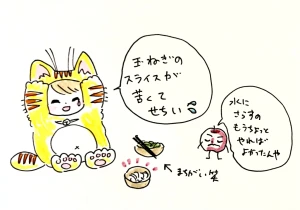 玉ねぎの
スライスが
苦くて
せちい
水に
さらすの
もうちょっと
やれば
よかったんや
まちがい笑